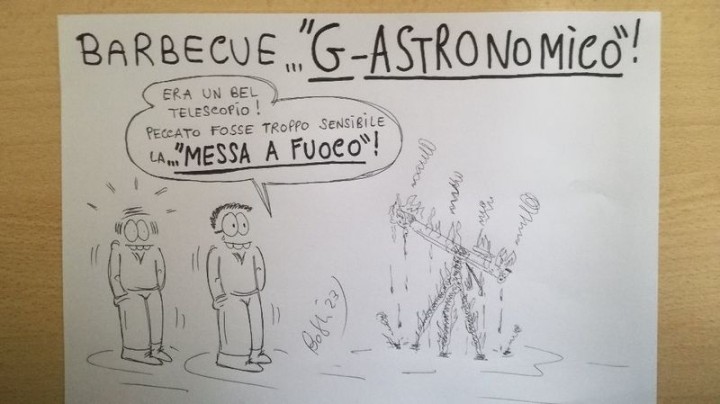 BARBECUE..."G-ASTRONOMICO"!
ERA UN BEL
TELESCOPIO!
PECCATO FOSSE TROPPO SENSIBILE
LA..."MESSA A FUOCO"!